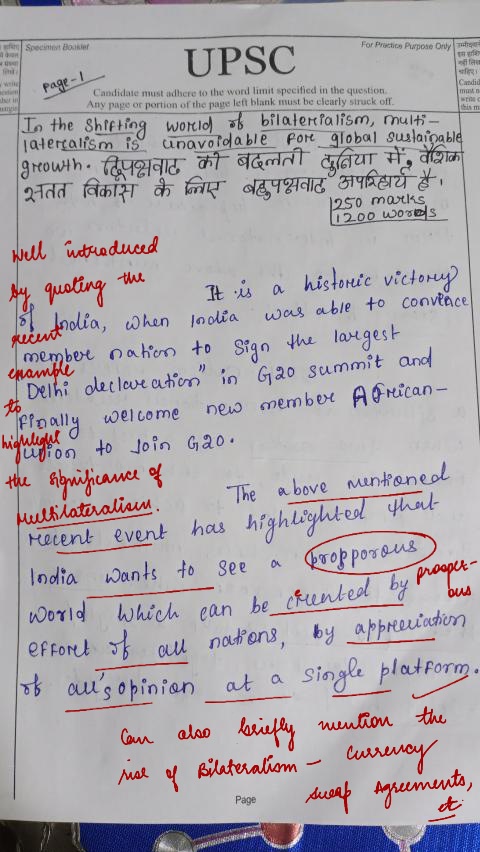 Specimen Booklet
UPSC
For Practice Purpose Only
Page-1
Candidate must adhere to the word limit specified in the question.
Any page or portion of the page left blank must be clearly struck off.
In the shifting world of bilaterialism, multi-
laterealism is unavoidable fore global sustainable
growth. द्विपक्षवाद की बदलती दुनिया में, वैश्विक
सतत विकास के लिए बहुपक्षवाद अपरिहार्य है।
250 marks
1200 words
Well introduced
by quoting the
recent
example
to
highlight
the significance of
Multilateralism.
It is a historic victory
of India, when India was able to convence
member nation to sign the largest
Delhi declaration" in G20 summit and
finally welcome new member African-
union to join G20.
The above mentioned
recent event has highlighted that
India wants to see a propporous
prosper-
ous
world which can be created by
effort of all nations, by appreciation
of all's opinion at a single platform.
Can also briefly mention the
rise of Bilateralism - Currency
swap Agreements,
etc
Page